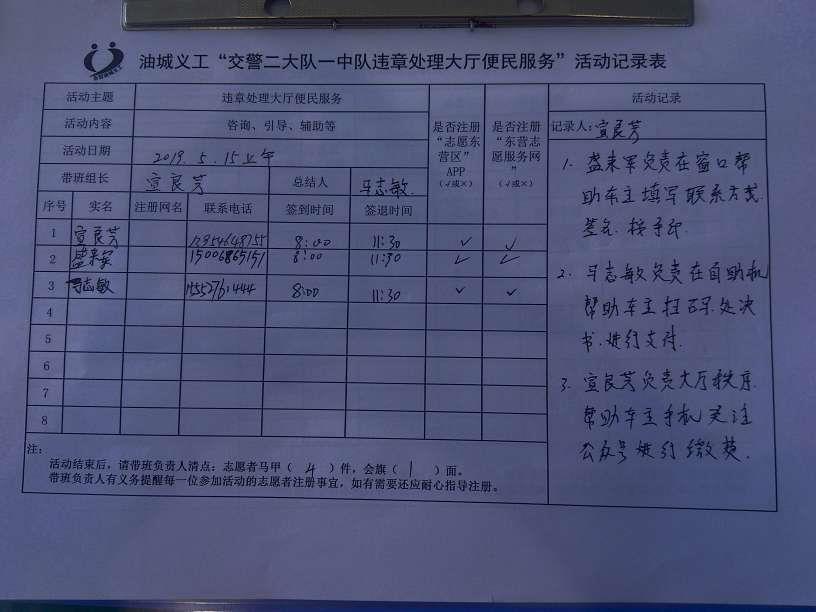 油城义工“交警二大队一中队违章处理大厅便民服务”活动记录表
活动主题 违章处理大厅便民服务 是否注册“志愿东营区”APP（√或×） 是否注册“东营志愿服务网”（√或×） 活动记录
活动内容 咨询、引导、辅助等
活动日期 2019.5.15上午
带班组长 宣良芳 总结人 马志敏
序号 实名 注册网名 联系电话 签到时间 签退时间
1 宣良芳 8:00 11:30 ✓ ✓
2 15006865151 8:00 11:30 ✓ ✓
3 马志敏 8:00 11:30 ✓ ✓
4
5
6
7
8
记录人：宣良芳
1. 盛来军负责在窗口帮
助车主填写联系方式.
签名.按手印.
2. 马志敏负责在自助机
帮助车主扫码.处决
书.进行支付.
3. 宣良芳负责大厅秩序.
帮助车主手机关注
公众号进行缴费.
注：
活动结束后，请带班负责人清点：志愿者马甲（ 4 ）件，会旗（ 1 ）面。
带班负责人有义务提醒每一位参加活动的志愿者注册事宜，如有需要还应耐心指导注册。